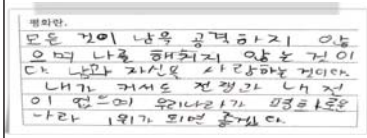 평화란.
모든 것이 남을 공격하지 않
으며 나를 해치지 않는 것이
다. 남과 자신을 사랑하는 것이다.
내가 커서도 전쟁과 내전
이 없으며 우리나라가 평화로운
나라 1위가 되면 좋겠다.